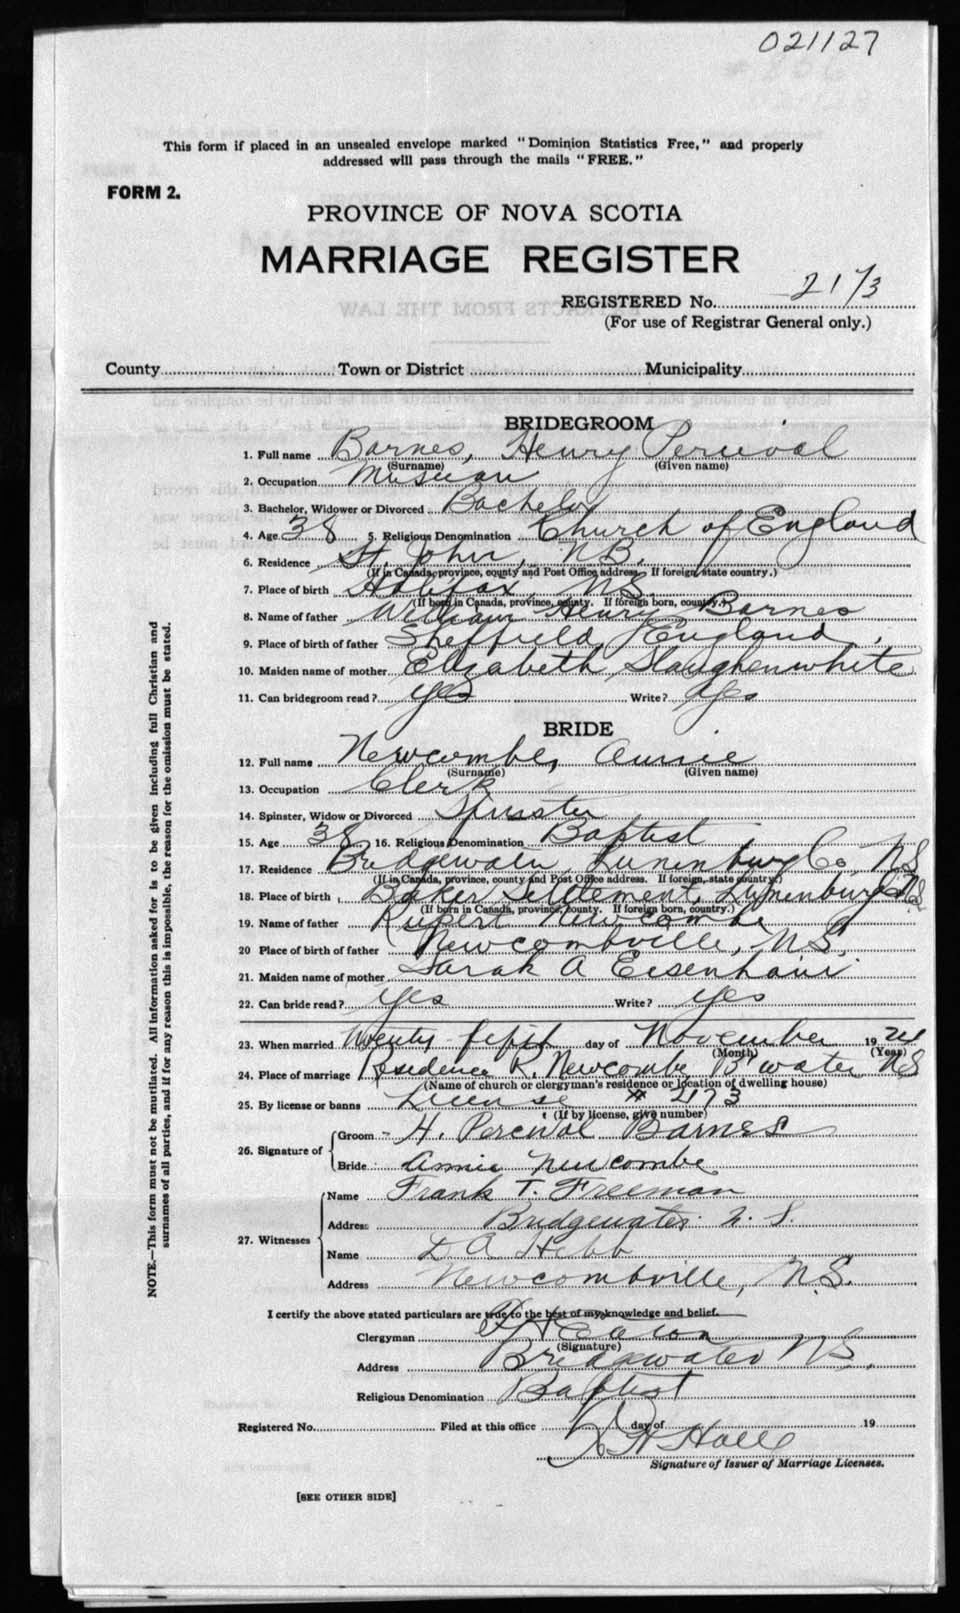 021127
This form if placed in an unsealed envelope marked "Dominion Statistics Free," and properly
addressed will pass through the mails "FREE."
FORM 2.
PROVINCE OF NOVA SCOTIA
MARRIAGE REGISTER
REGISTERED No. 2173
(For use of Registrar General only.)
County Town or District Municipality
BRIDEGROOM
1. Full name Barnes, Henry Percival
(Surname) (Given name)
2. Occupation Musician
3. Bachelor, Widower or Divorced Bachelor
4. Age 38 5. Religious Denomination Church of England
6. Residence St. John, N.B.
(If in Canada, province, county and Post Office address. If foreign, state country.)
7. Place of birth Halifax, N.S.
(If born in Canada, province, county. If foreign born, country.)
8. Name of father William Henry Barnes
9. Place of birth of father Sheffield, England
10. Maiden name of mother Elizabeth Slaughenwhite
11. Can bridegroom read? yes Write? yes
BRIDE
12. Full name Newcombe, Annie
(Surname) (Given name)
13. Occupation Clerk
14. Spinster, Widow or Divorced Spinster
15. Age 38 16. Religious Denomination Baptist
17. Residence Bridgewater, Lunenburg Co, N.S
(If in Canada, province, county and Post Office address. If foreign, state country.)
18. Place of birth Baker Settlement, Lunenburg N.S.
(If born in Canada, province, county. If foreign born, country.)
19. Name of father Rupert Newcombe
20 Place of birth of father Newcombville, N.S.
21. Maiden name of mother Sarah A Eisenhaur
22. Can bride read? yes Write? yes
23. When married Twenty fifth day of November 1924
(Month) (Year)
24. Place of marriage Residence R. Newcombe B'water NS
(Name of church or clergyman's residence or location of dwelling house)
25. By license or banns License # 273
(If by license, give number)
26. Signature of Groom H. Percival Barnes
Bride Annie Newcombe
27. Witnesses Name Frank T. Freeman
Address Bridgewater N. S.
Name D A Hebb
Address Newcombville, N.S.
I certify the above stated particulars are true to the best of my knowledge and belief.
Clergyman H Eaton
(Signature)
Address Bridgewater N.S.
Religious Denomination Baptist
Registered No. Filed at this office day of 19
Hall
Signature of Issuer of Marriage Licenses.
[SEE OTHER SIDE]
NOTE.—This form must not be mutilated. All information asked for is to be given including full Christian and
surnames of all parties, and if for any reason this is impossible, the reason for the omission must be stated.